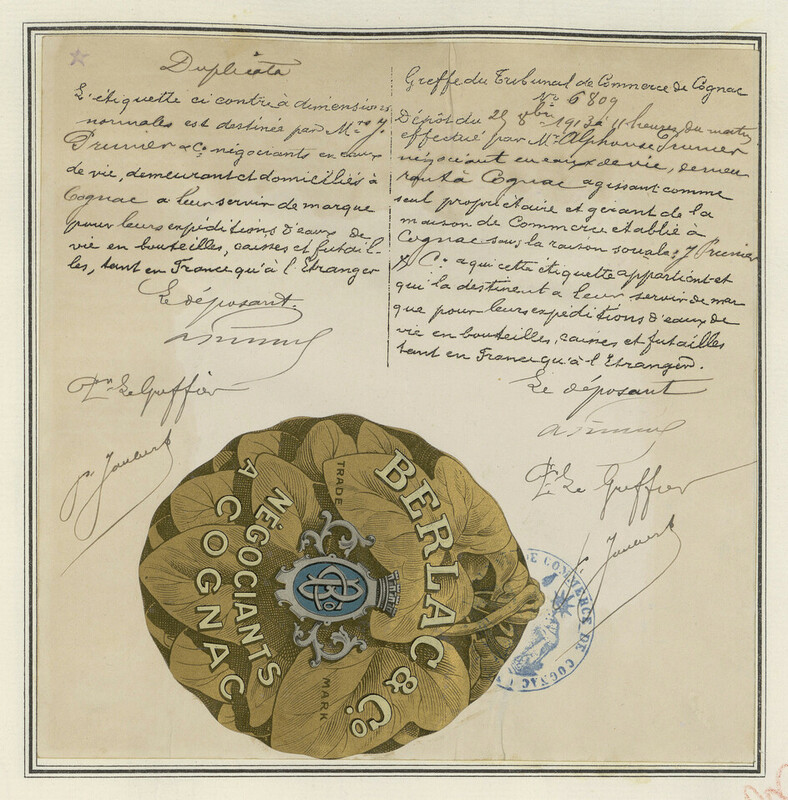 Duplicata
L'étiquette ci contre à dimensions
normales est destinée par Mrs J.
Prunier & Co négociants en eaux
de vie, demeurant et domiciliés à
Cognac a leur servir de marque
pour leurs expéditions d'eaux de
vie en bouteilles, caisses et futail-
les, tant en France qu'à l'Etranger
Le déposant.
Le Greffier
Greffe du Tribunal de Commerce de Cognac
No 6809
Dépôt du 29 8bre 1913 à 11 heures du matin
effectué par Mr Alphonse Prunier
négociant en eaux de vie, demeu
rant à Cognac agissant comme
seul propriétaire et gérant de la
maison de Commerce établie à
Cognac sous la raison sociale: J Prunier
& Co a qui cette étiquette appartient et
qui la destinent a leur servir de mar
que pour leurs expéditions d'eaux de
vie en bouteilles, caisses et futailles
tant en France qu'à l'Etranger.
Le déposant
Le Greffier
BERLAC & Co
TRADE
MARK
NÉGOCIANTS
A
COGNAC
DE COMMERCE DE COGNAC